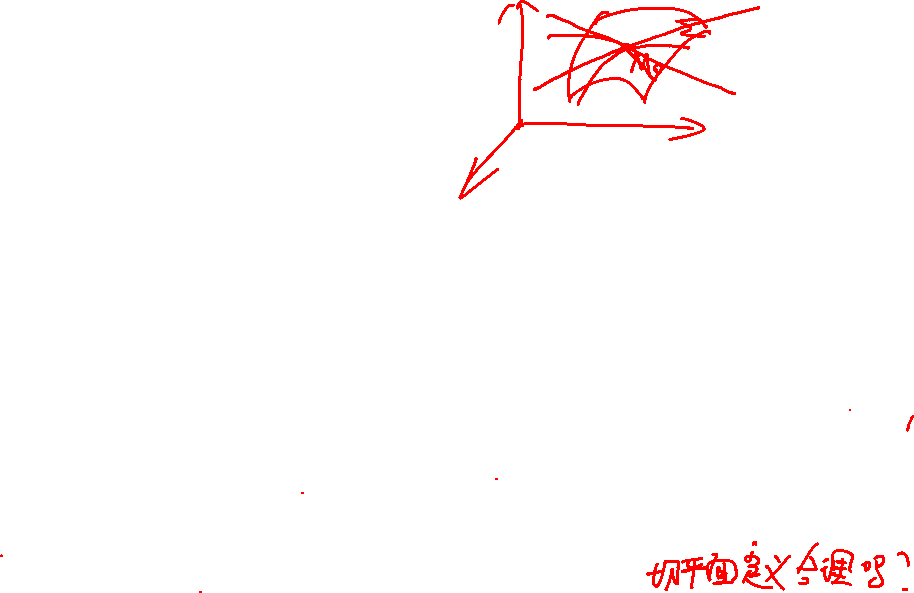 Σ
M₀
切平面定义合理吗?